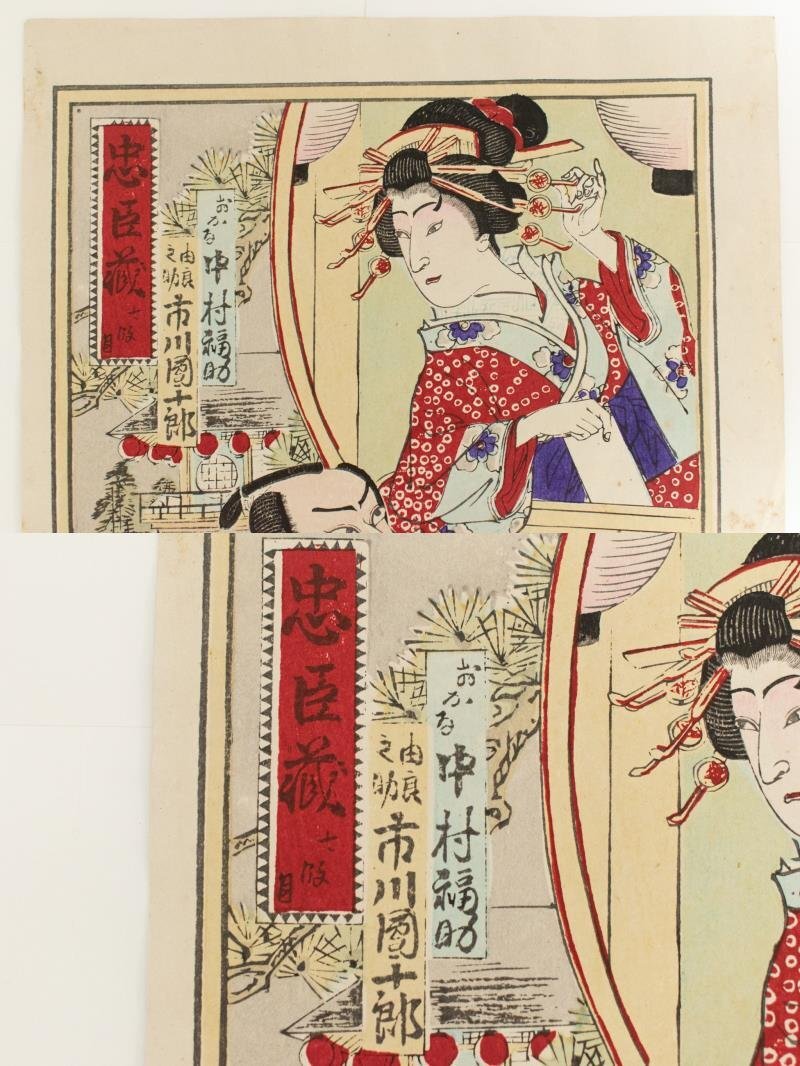 おかる 中村福助
由良之助 市川團十郎
忠臣藏 七段目
おかる 中村福助
由良之助 市川團十郎
忠臣藏 七段目